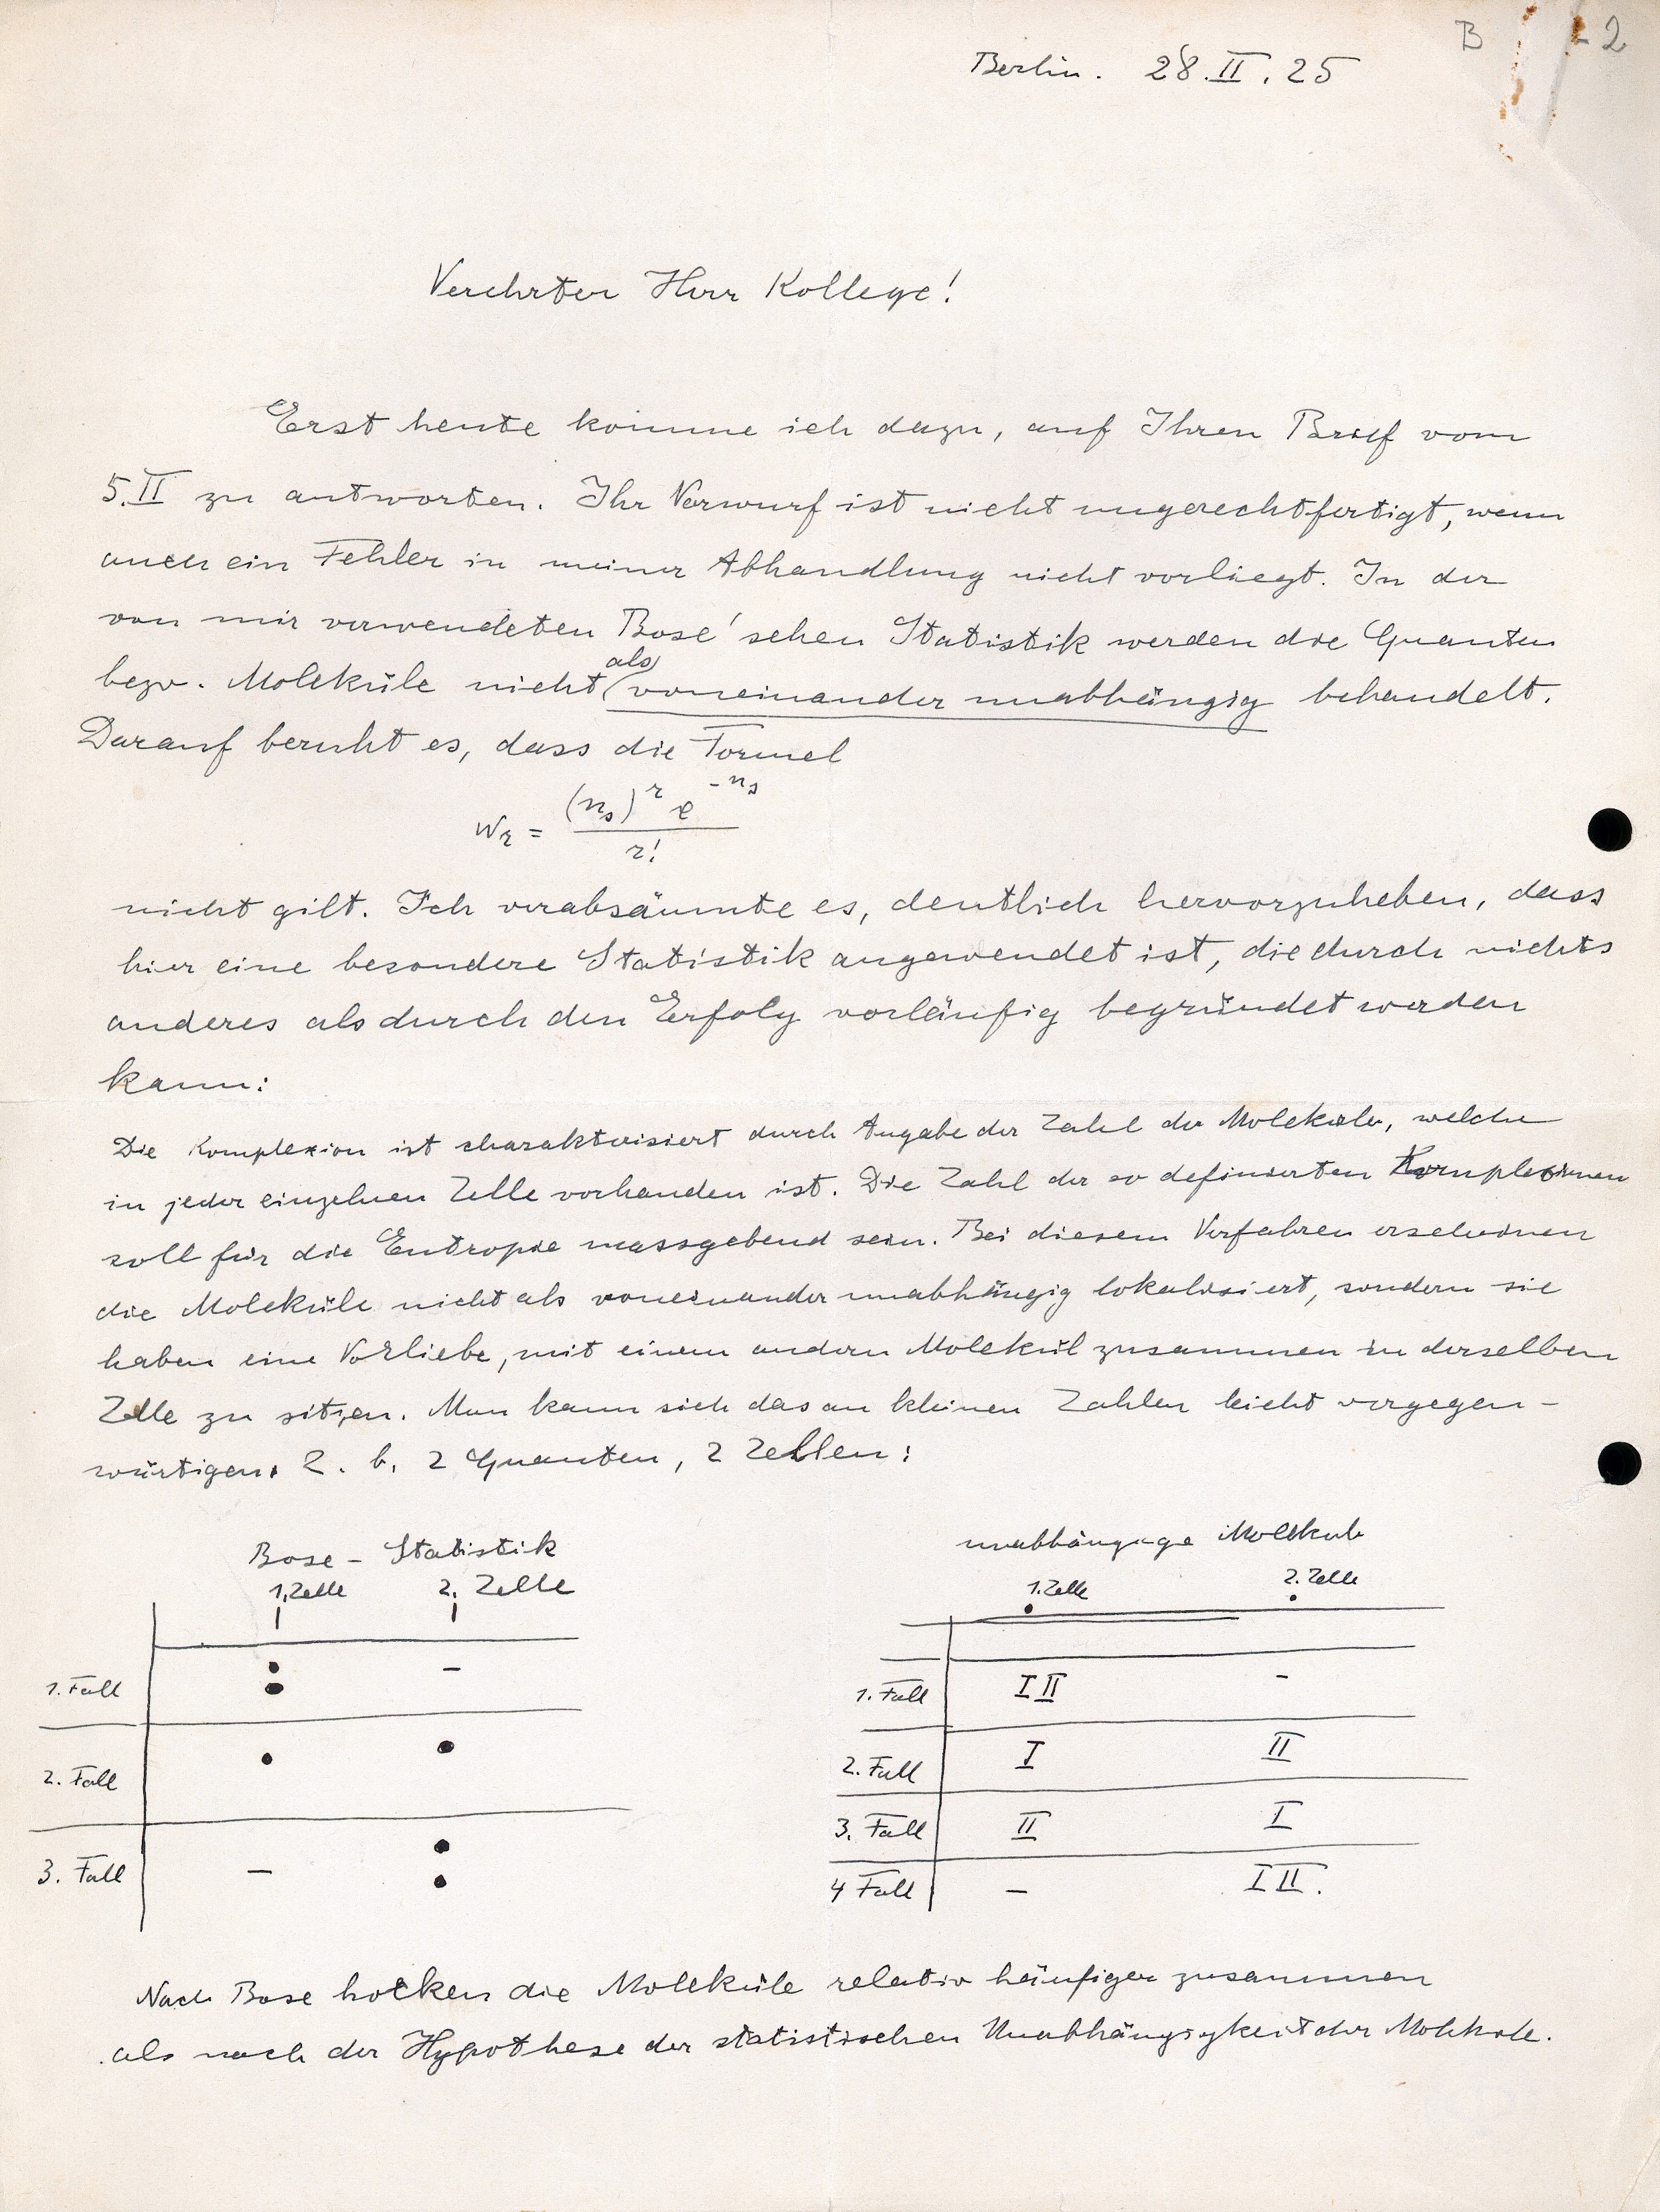 B - 2
Berlin. 28.II.25
Verehrter Herr Kollege!
Erst heute komme ich dazu, auf Ihren Brief vom
5.II zu antworten. Ihr Vorwurf ist nicht ungerechtfertigt, wenn
auch ein Fehler in meiner Abhandlung nicht vorliegt. In der
von mir verwendeten Bose'schen Statistik werden die Quanten
als
bezw. Moleküle nicht voneinander unabhängig behandelt.
Darauf beruht es, dass die Formel
w_r = (n_s)^r e^{-n_s} / r!
nicht gilt. Ich verabsäumte es, deutlich hervorzuheben, dass
hier eine besondere Statistik angewendet ist, die durch nichts
anderes als durch den Erfolg vorläufig begründet werden
kann:
Die Komplexion ist charakterisiert durch Angabe der Zahl der Moleküle, welche
in jeder einzelnen Zelle vorhanden ist. Die Zahl der so definierten Komplexionen
soll für die Entropie massgebend sein. Bei diesem Verfahren erscheinen
die Moleküle nicht als voneinander unabhängig lokalisiert, sondern sie
haben eine Vorliebe, mit einem andern Molekül zusammen in derselben
Zelle zu sitzen. Man kann sich das an kleinen Zahlen leicht vergegen-
wärtigen. Z. b. 2 Quanten, 2 Zellen:
Bose - Statistik
1. Zelle 2. Zelle
1. Fall : -
2. Fall . .
3. Fall - :
unabhängige Moleküle
1. Zelle 2. Zelle
1. Fall I II -
2. Fall I II
3. Fall II I
4 Fall - I II.
Nach Bose hocken die Moleküle relativ häufiger zusammen
als nach der Hypothese der statistischen Unabhängigkeit der Moleküle.